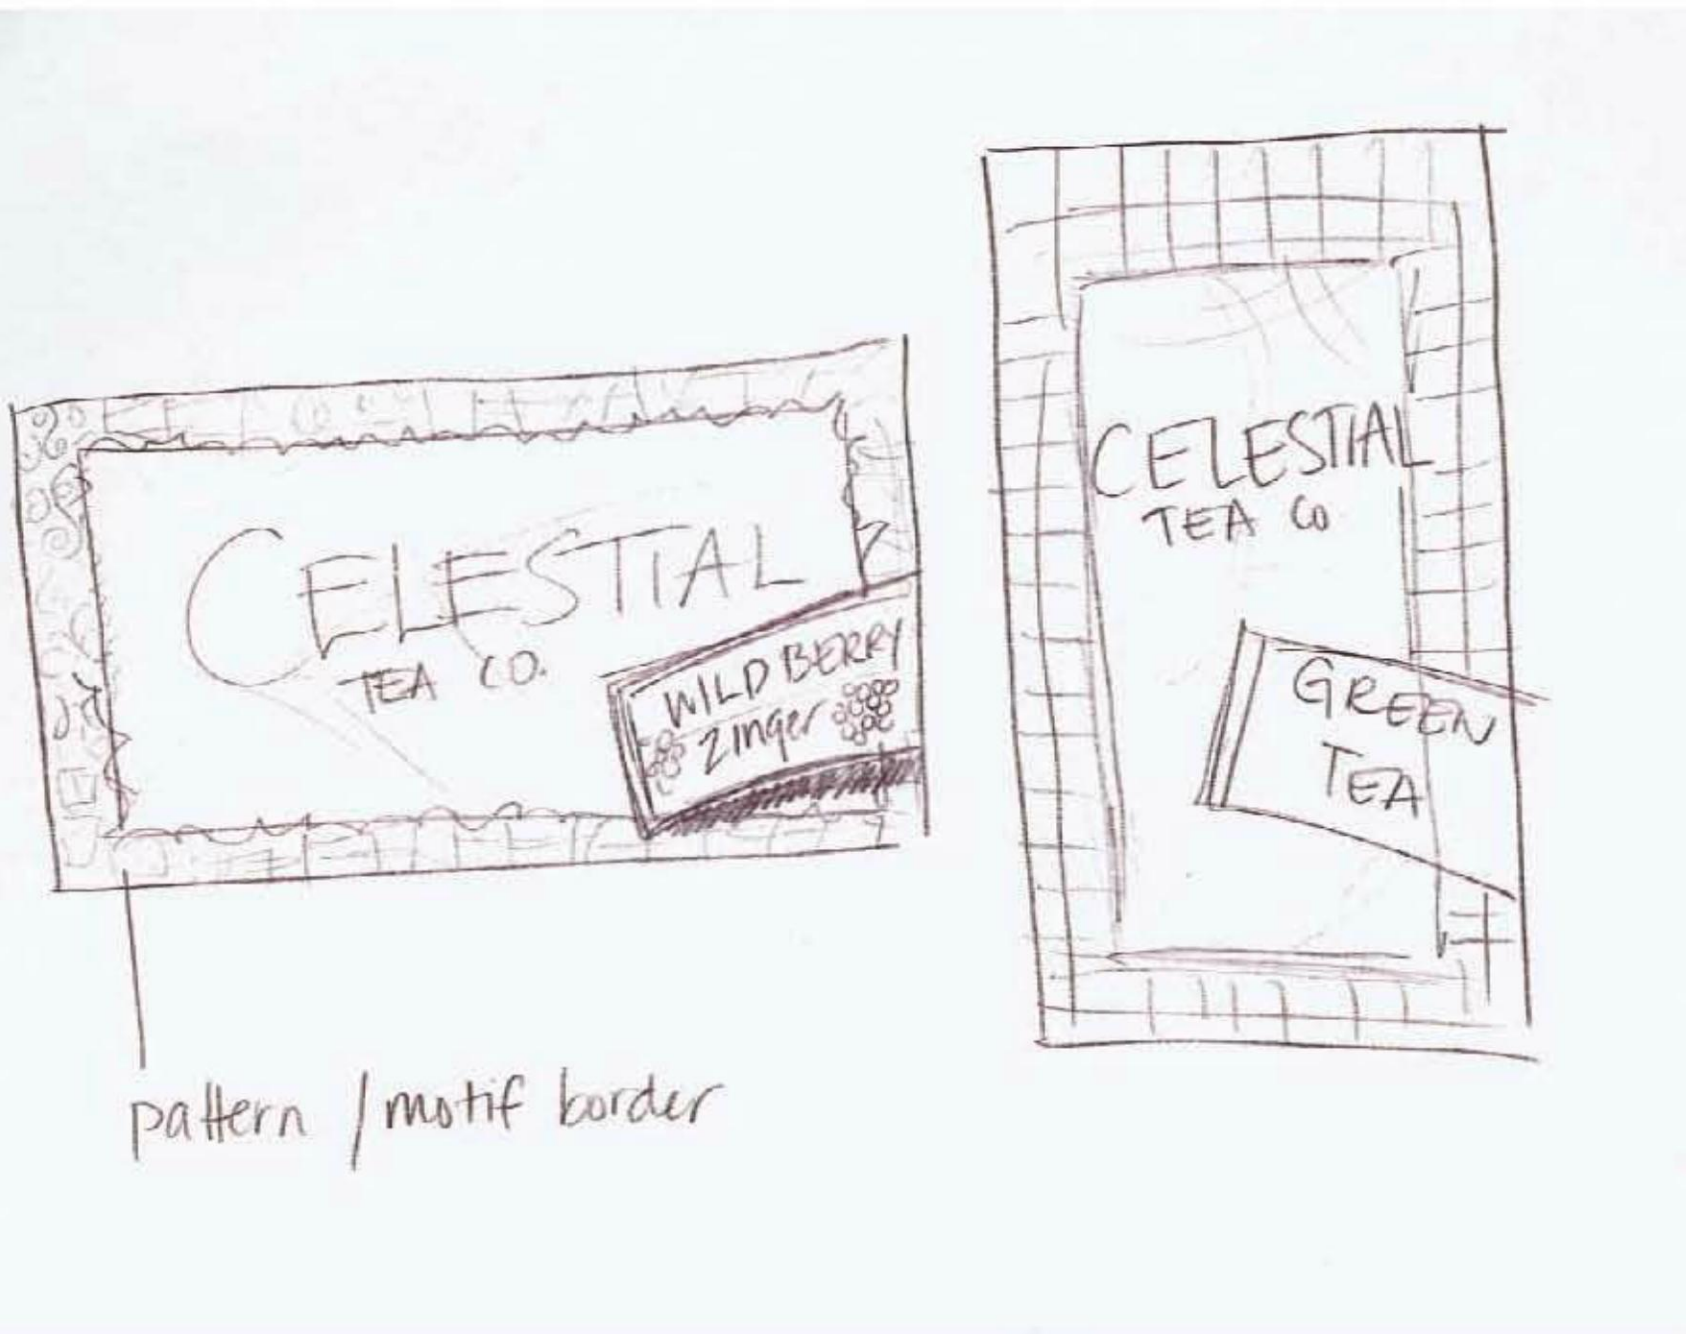 CELESTIAL
TEA CO.
WILD BERRY
zinger
pattern / motif border
CELESTIAL
TEA CO
GREEN
TEA